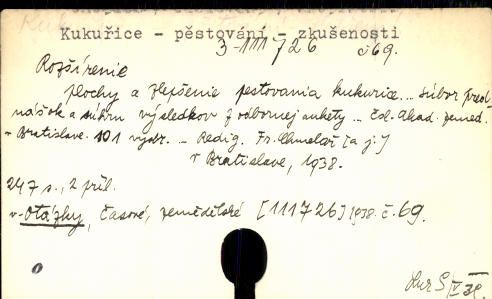 Kukuřice - pěstování - zkušenosti
3-111726 č69.
Rozšírenie
plochy a zlepšenie pestovania kukurice... Súbor pred-
nášok a súhrn výsledkov z odbornej ankety... Čsl. Akad. zeměd.
v Bratislave. 101 vyobr. .. Redig. Fr. Chmelař [a j.]
V Bratislave, 1938.
247 s., 2 príl.
v-Otázky, Časové, zemědělské [111726] 1938. č.69.